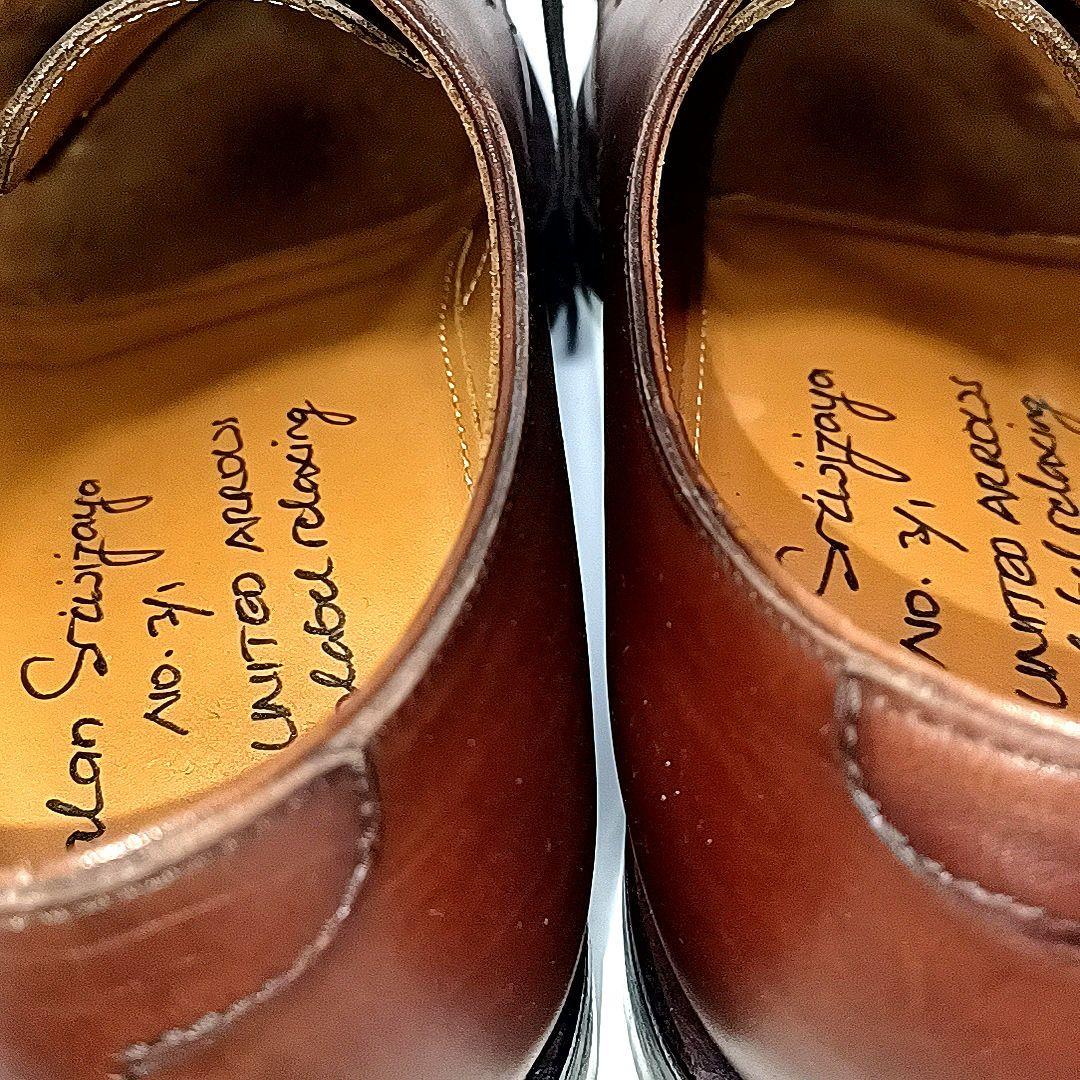 Jalan Sriwijaya
NO. 3/1
UNITED ARROWS
label relaxing
Sriwijaya
NO. 3/1
UNITED ARROWS
label relaxing